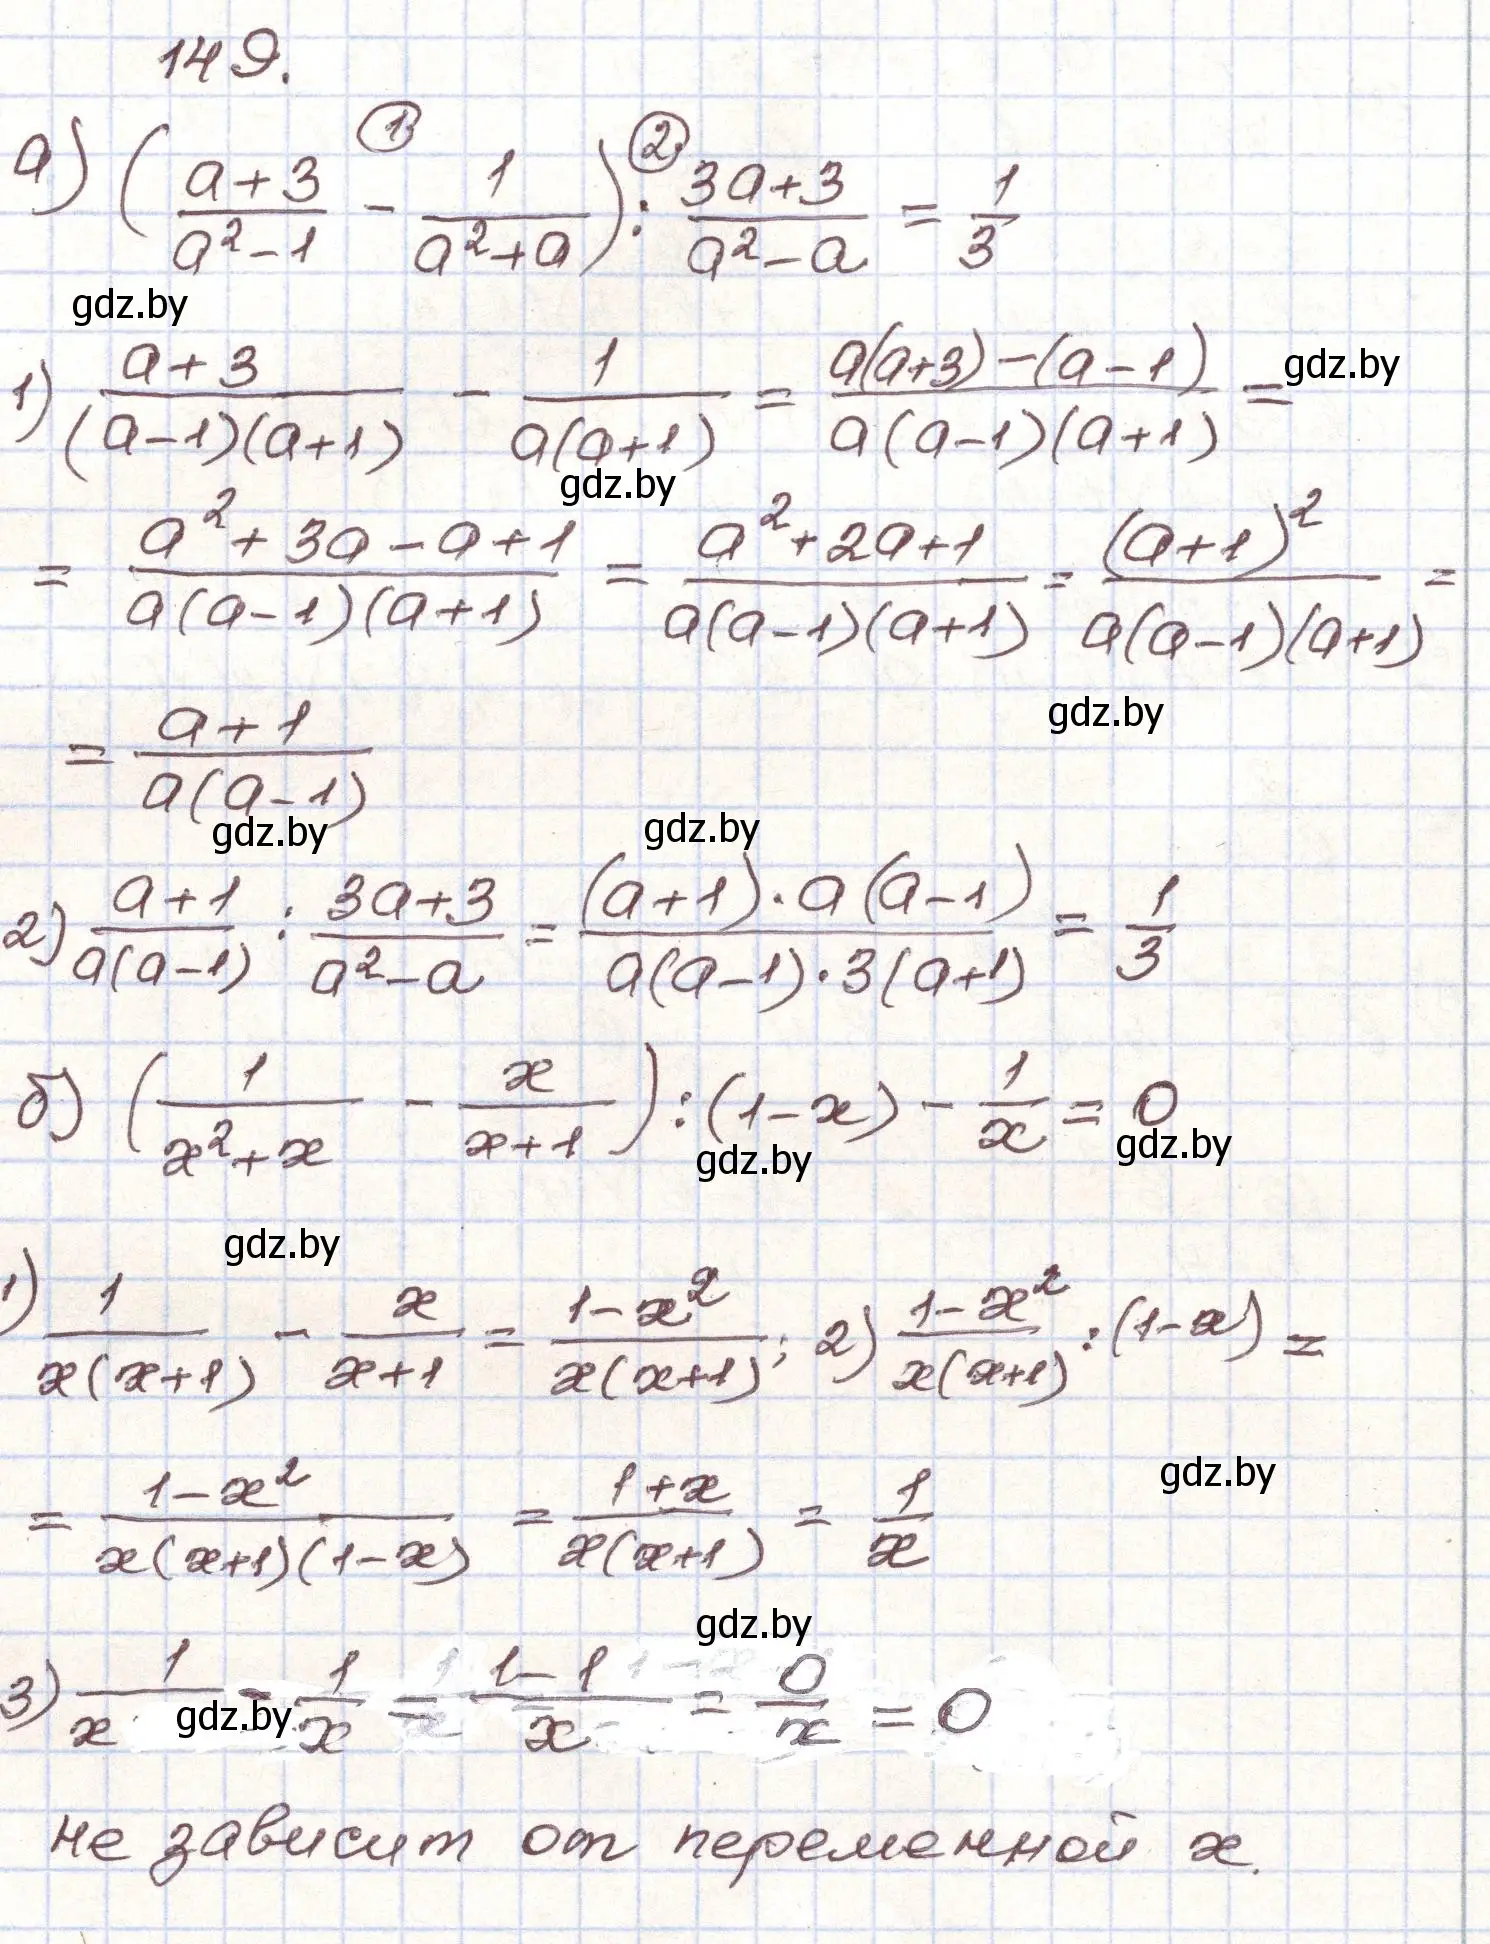 149.
а) ((a+3)/(a²-1) - 1/(a²+a)) : (3a+3)/(a²-a) = 1/3
① ②
gdz.by
1) (a+3)/((a-1)(a+1)) - 1/(a(a+1)) = (a(a+3)-(a-1))/(a(a-1)(a+1)) =
gdz.by
gdz.by
= (a²+3a-a+1)/(a(a-1)(a+1)) = (a²+2a+1)/(a(a-1)(a+1)) = (a+1)²/(a(a-1)(a+1)) =
gdz.by
= (a+1)/(a(a-1))
gdz.by
gdz.by
2) (a+1)/(a(a-1)) : (3a+3)/(a²-a) = ((a+1)·a(a-1))/(a(a-1)·3(a+1)) = 1/3
б) (1/(x²+x) - x/(x+1)) : (1-x) - 1/x = 0
gdz.by
gdz.by
gdz.by
1) 1/(x(x+1)) - x/(x+1) = (1-x²)/(x(x+1)); 2) (1-x²)/(x(x+1)) : (1-x) =
gdz.by
= (1-x²)/(x(x+1)(1-x)) = (1+x)/(x(x+1)) = 1/x
gdz.by
3) 1/x - 1/x = (1-1)/x = 0/x = 0
gdz.by
не зависит от переменной x.